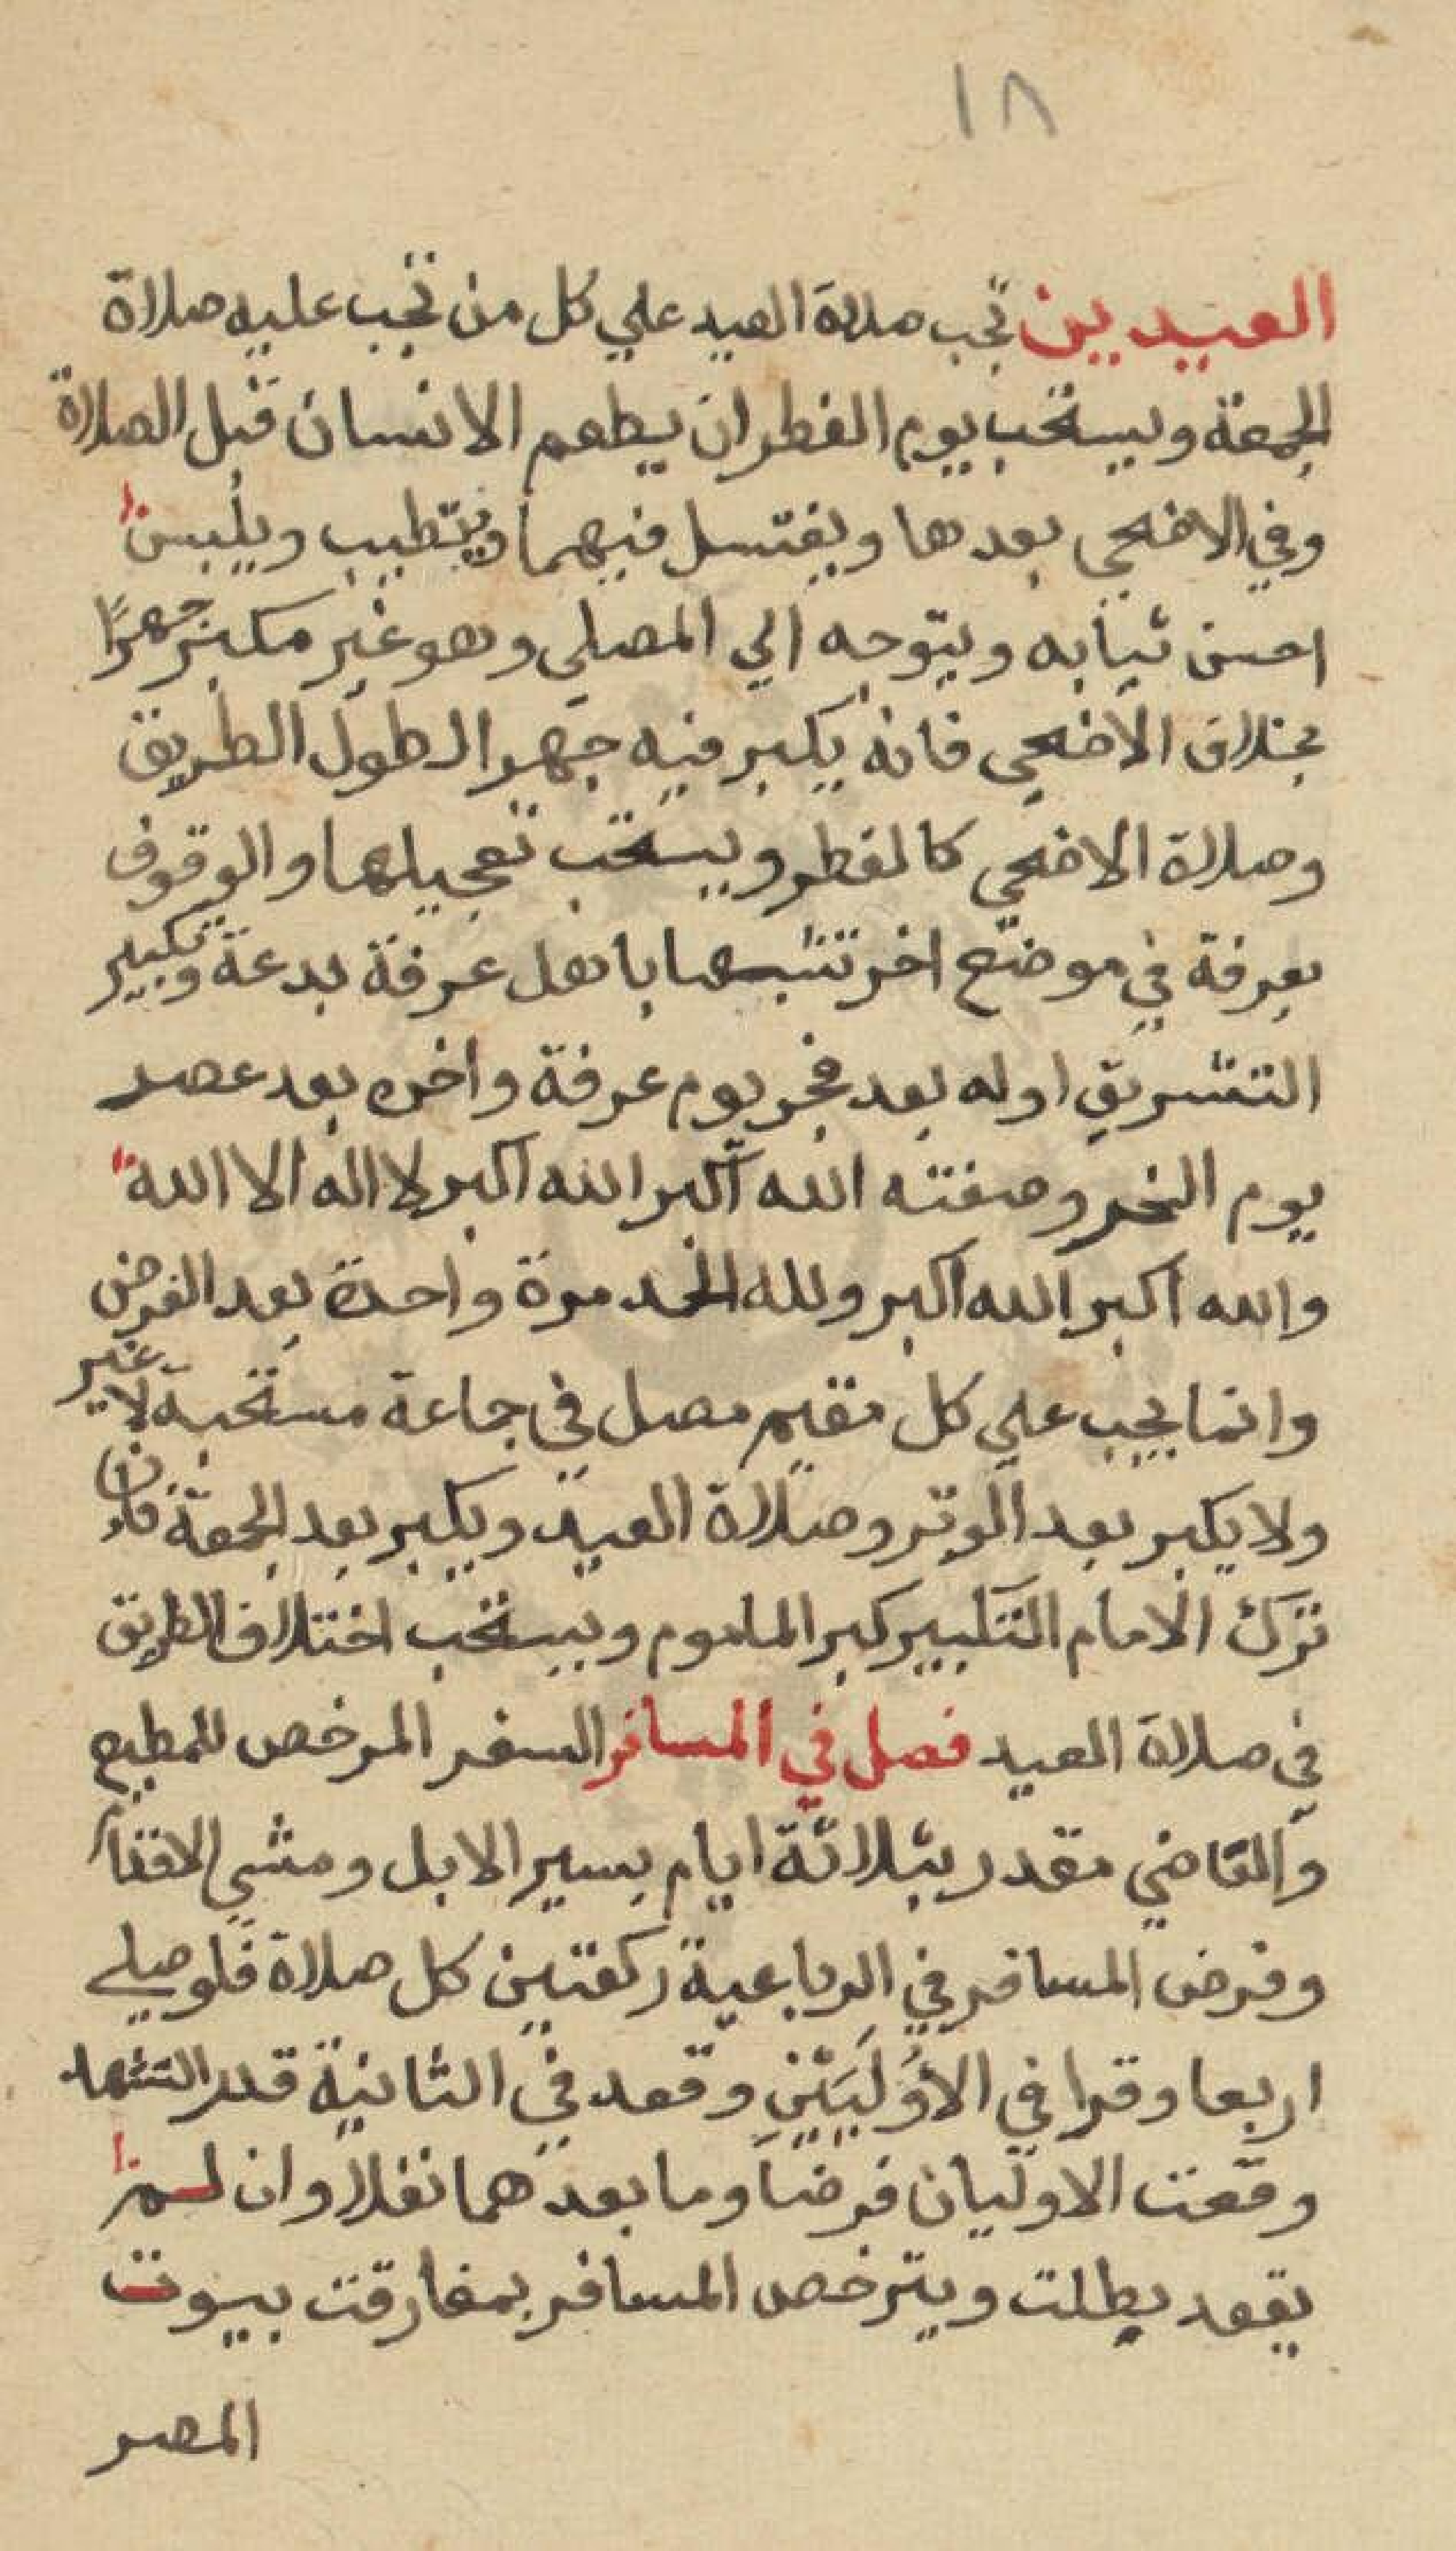 ١٨
العيدين تجب صلاة العيد علي كل من تجب عليه صلاة
الجمعة ويستحب يوم الفطر ان يطعم الانسان قبل الصلاة
وفي الاضحي بعدها ويغتسل فيهما ويتطيب ويلبس
احسن ثيابه ويتوجه الي المصلي وهو غير مكبر جهرًا
بخلاف الاضحي فانه يكبر فيه جهرا لطول الطريق
وصلاة الاضحي كالفطر ويستحب تعجيلها والوقوف
بعرفة في موضع اخر تشبها باهل عرفة بدعة وتكبير
التشريق اوله بعد فجر يوم عرفة واخره بعد عصر
يوم النحر وصفته الله اكبر الله اكبر لا اله الا الله
والله اكبر الله اكبر ولله الحمد مرة واحدة بعد الفرض
وانما يجب علي كل مقيم مصل في جماعة مستحبة لا غير
ولا يكبر بعد الوتر وصلاة العيد ويكبر بعد الجمعة فان
ترك الامام التكبير كبر الماموم ويستحب اختلاف الطريق
في صلاة العيد فصل في المسافر السفر المرخص للمطيع
والقاضي مقدر بثلاثة ايام بسير الابل ومشي الاقدام
وفرض المسافر في الرباعية ركعتين كل صلاة فلو صلي
اربعا وقرا في الأوَليَيْنِ وقعد في الثانية قدر التشهد
وقعت الاوليان فرضا وما بعدهما نفلا وان لم
يقعد بطلت ويترخص المسافر بمفارقت بيوت
المصر